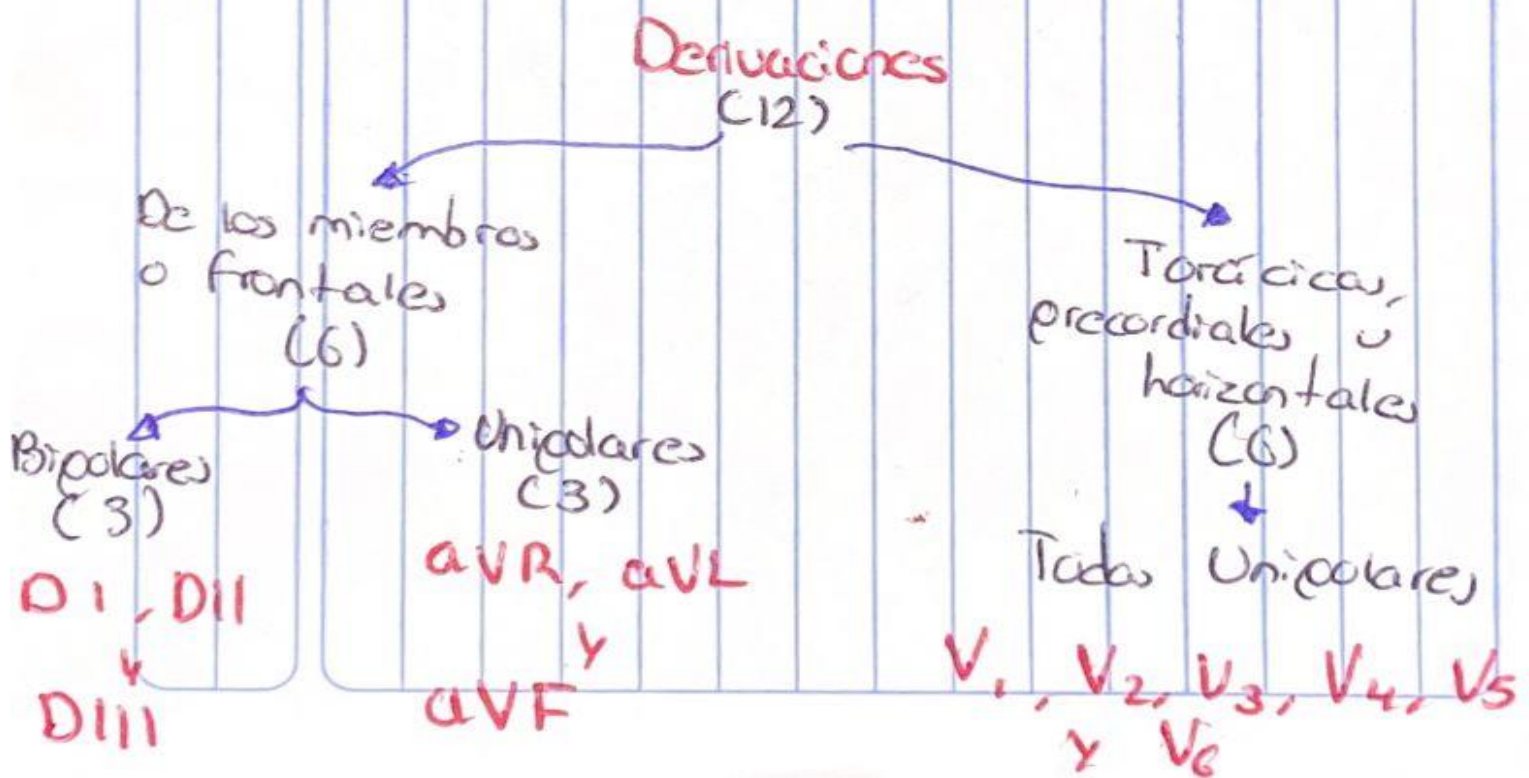 Derivaciones
(12)
De los miembros
o frontales
(6)
Bipolares
(3)
DI, DII
y
DIII
Unipolares
(3)
aVR, aVL
y
aVF
Torácicas,
precordiales u
horizontales
(6)
Todas Unipolares
V1, V2, V3, V4, V5
y V6